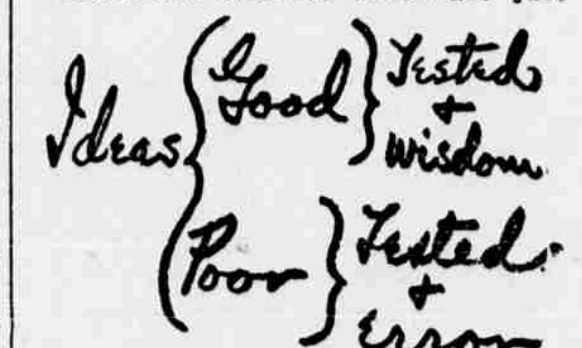 Ideas { Good } Tested
+
wisdom
{ Poor } Tested
+
Error